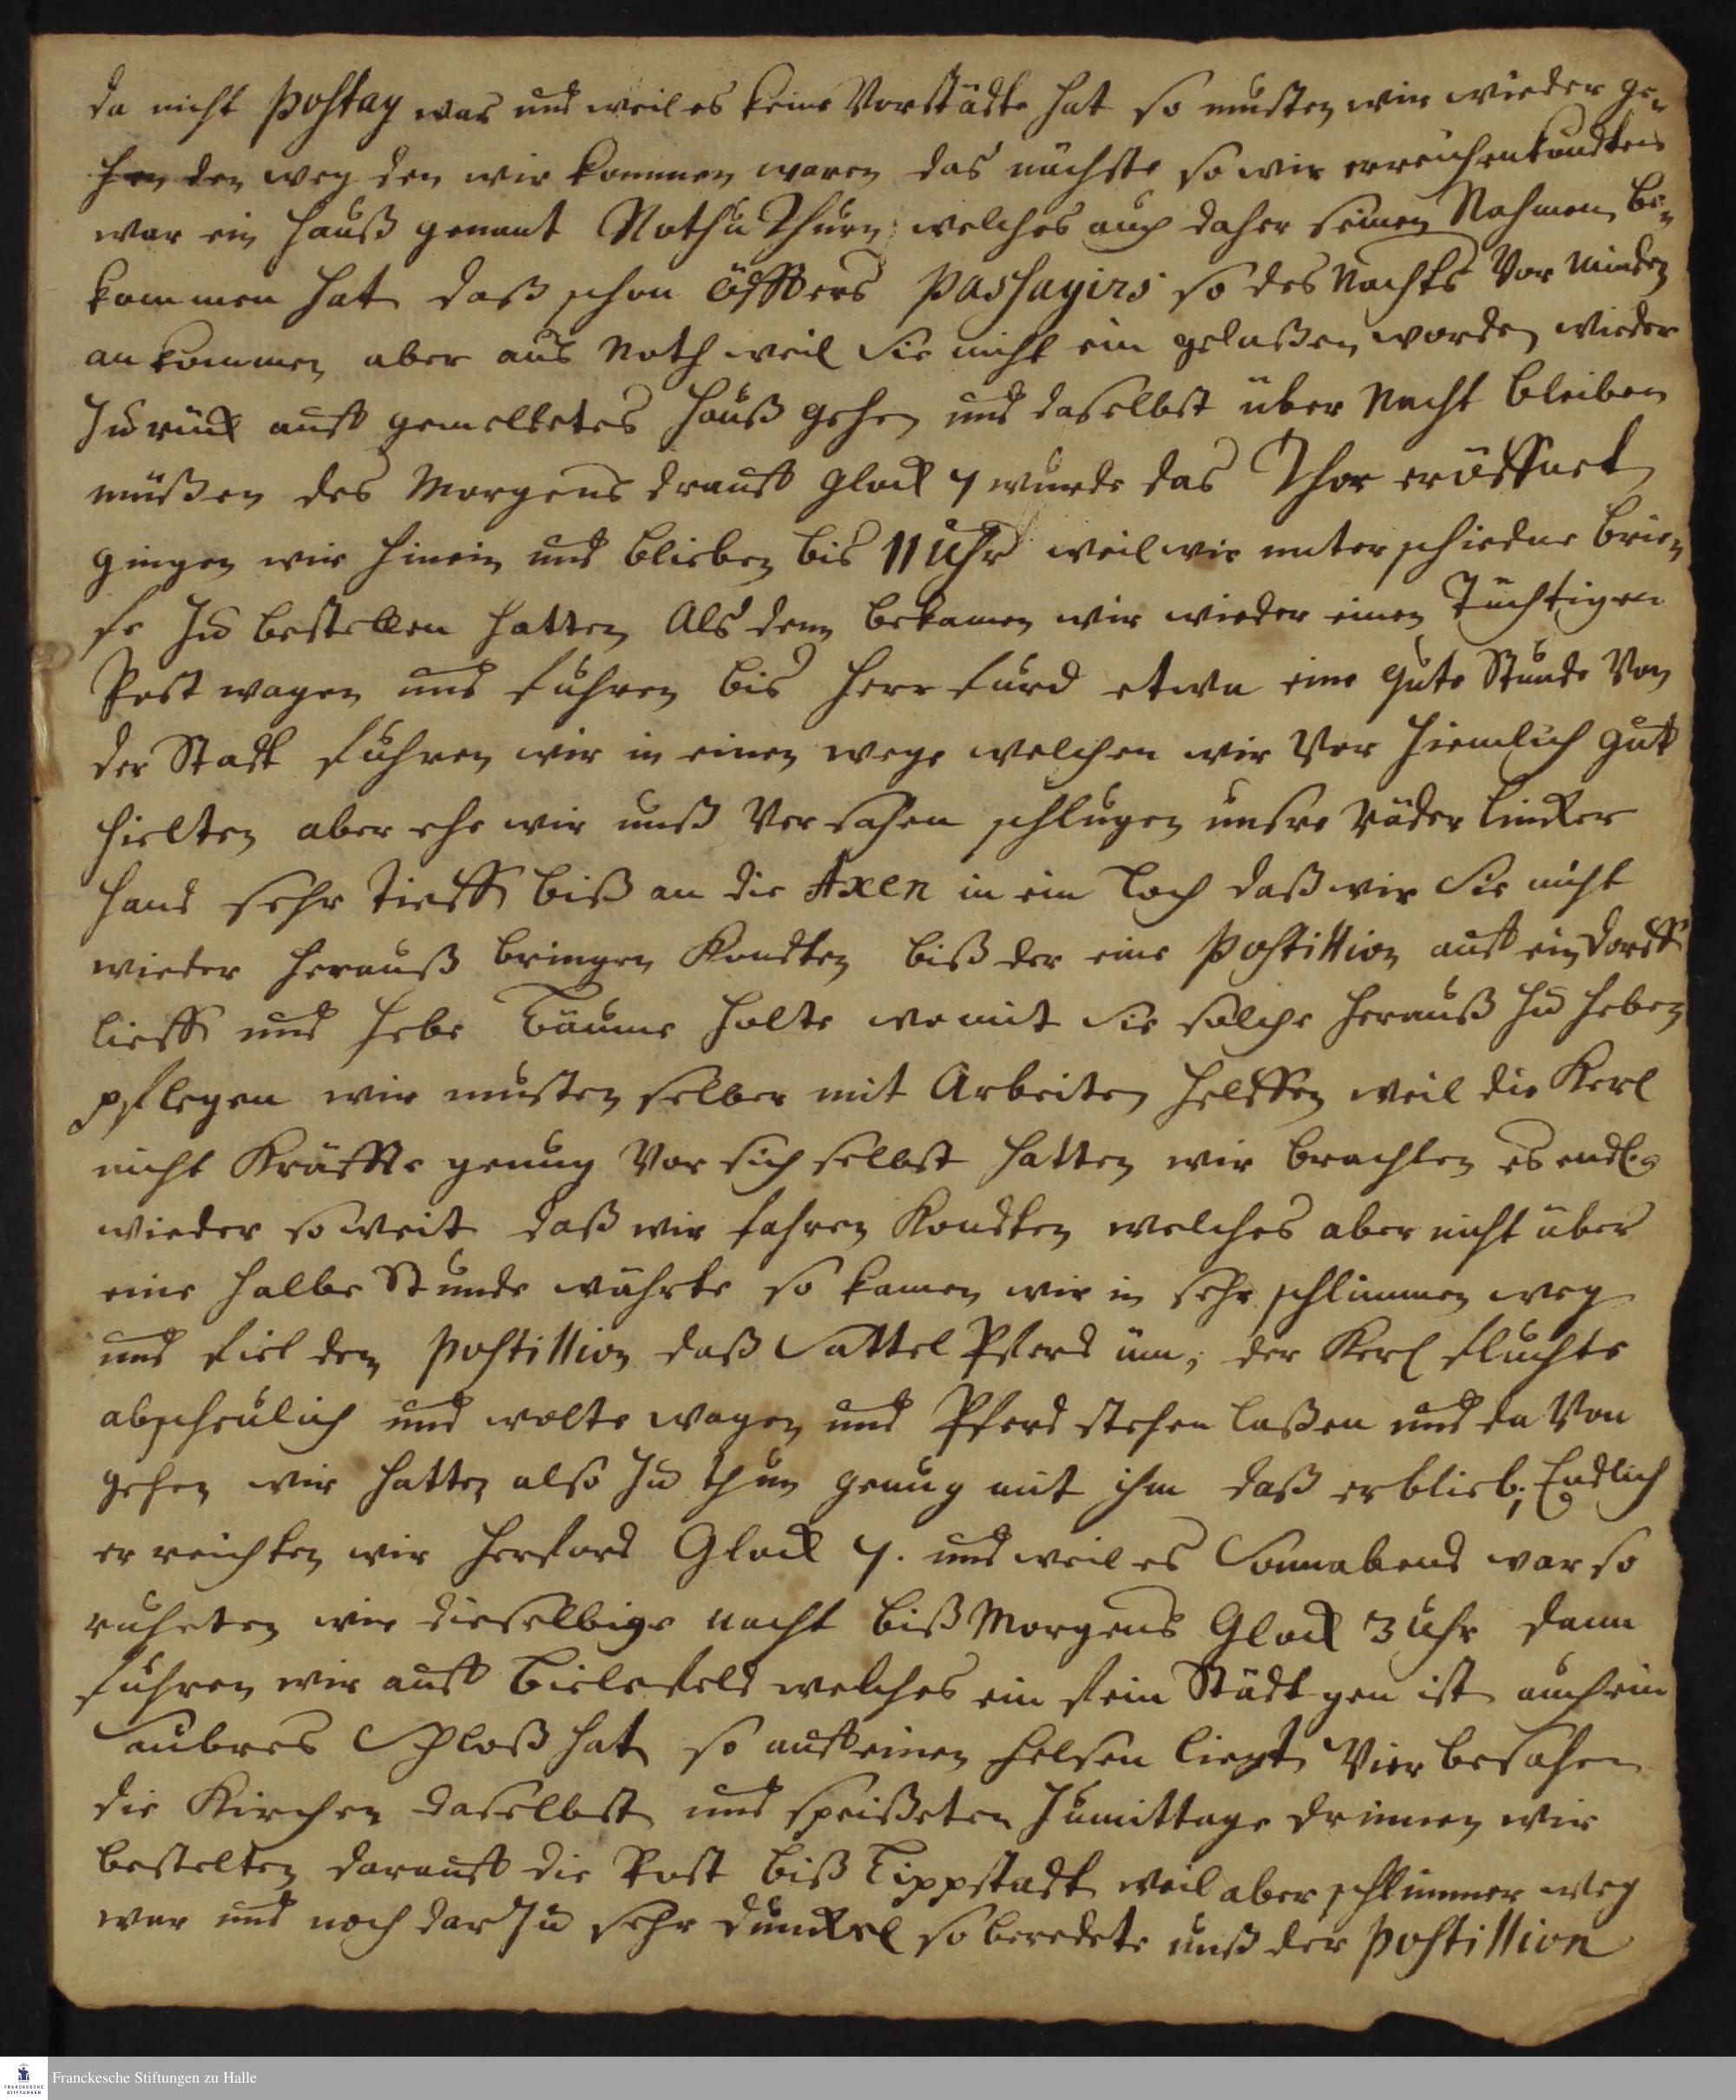 da nicht postag war und weil es keine Vorstädte hat so musten wir wieder ge-
hen den weg den wir kommen waren das nächste so wir erreichen kondten
war ein Hauß genant Noth u Thurn; welches auch daher seinen Nahmen be-
kommen hat daß schon öffters passagirs so des Nachts Vor Minden
an kommen aber aus Noth weil Sie nicht ein gelaßen worden wieder
Zurück auff gemeltetes Hauß gehen und daselbst über Nacht bleiben
müßen des Morgens drauff Glock 7 wurde das Thor eröffnet
gingen wir hinein und blieben bis 11 Uhr weil wir unterschiedne brie-
fe zu bestellen hatten Als denn bekamen wir wieder einen Tüchtigen
Post wagen und fuhren bis Herrfurd etwa eine gute Stunde Von
der Stadt fuhren wir in einen wege welchen wir Vor ziemlich gut
hielten aber ehe wir unß Versahen schlugen unsre räder lincker
Hand sehr tieff biß an die Axen in ein Loch daß wir Sie nicht
wieder herauß bringen kondten biß der eine postillion auff ein Dorff
lieff und hebe bäume holte womit Sie solche herauß zu heben
pflegen wir musten selber mit Arbeiten helffen weil die Kerl
nicht Kräffte genug Vor sich selbst hatten wir brachten es endl.
wieder so weit daß wir fahren kondten welches aber nicht über
eine halbe Stunde währte so kamen wir in sehr schlimmen weg
und fiel dem postillion daß Sattel Pferd üm, der Kerl fluchte
abscheulich und wolte wagen und Pferd stehen laßen und da Von
gehen wir hatten also zu thun genug mit ihm daß er blieb; Endlich
erreichten wir Herford Glock 7. und weil es Sonnabend war so
ruheten wir dieselbige nacht biß Morgens Glock 3 Uhr dann
fuhren wir auff Bielefeld welches ein fein Städtgen ist auch ein
saubres Schloß hat so auff einen Felsen liegt Wier besahen
die Kirchen daselbst und speißeten Zumittage drinnen wir
bestelten darauff die Post biß Lippstadt weil aber schlimmer weg
war und noch dar zu sehr dunckel so beredete unß der postillion
Franckesche Stiftungen zu Halle
FRANCKESCHE
STIFTUNGEN